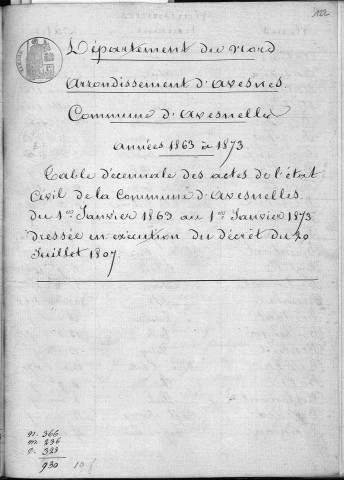 122
Département du Nord
Arrondissement d'Avesnes.
Commune d'Avesnelles
années 1863 à 1873.
Table décennale des actes de l'état
Civil de la Commune d'Avesnelles
du 1er Janvier 1863 au 1er Janvier 1873
dressée en exécution du décret du 20
Juillet 1807.
N. 366
M. 236
D. 328
930